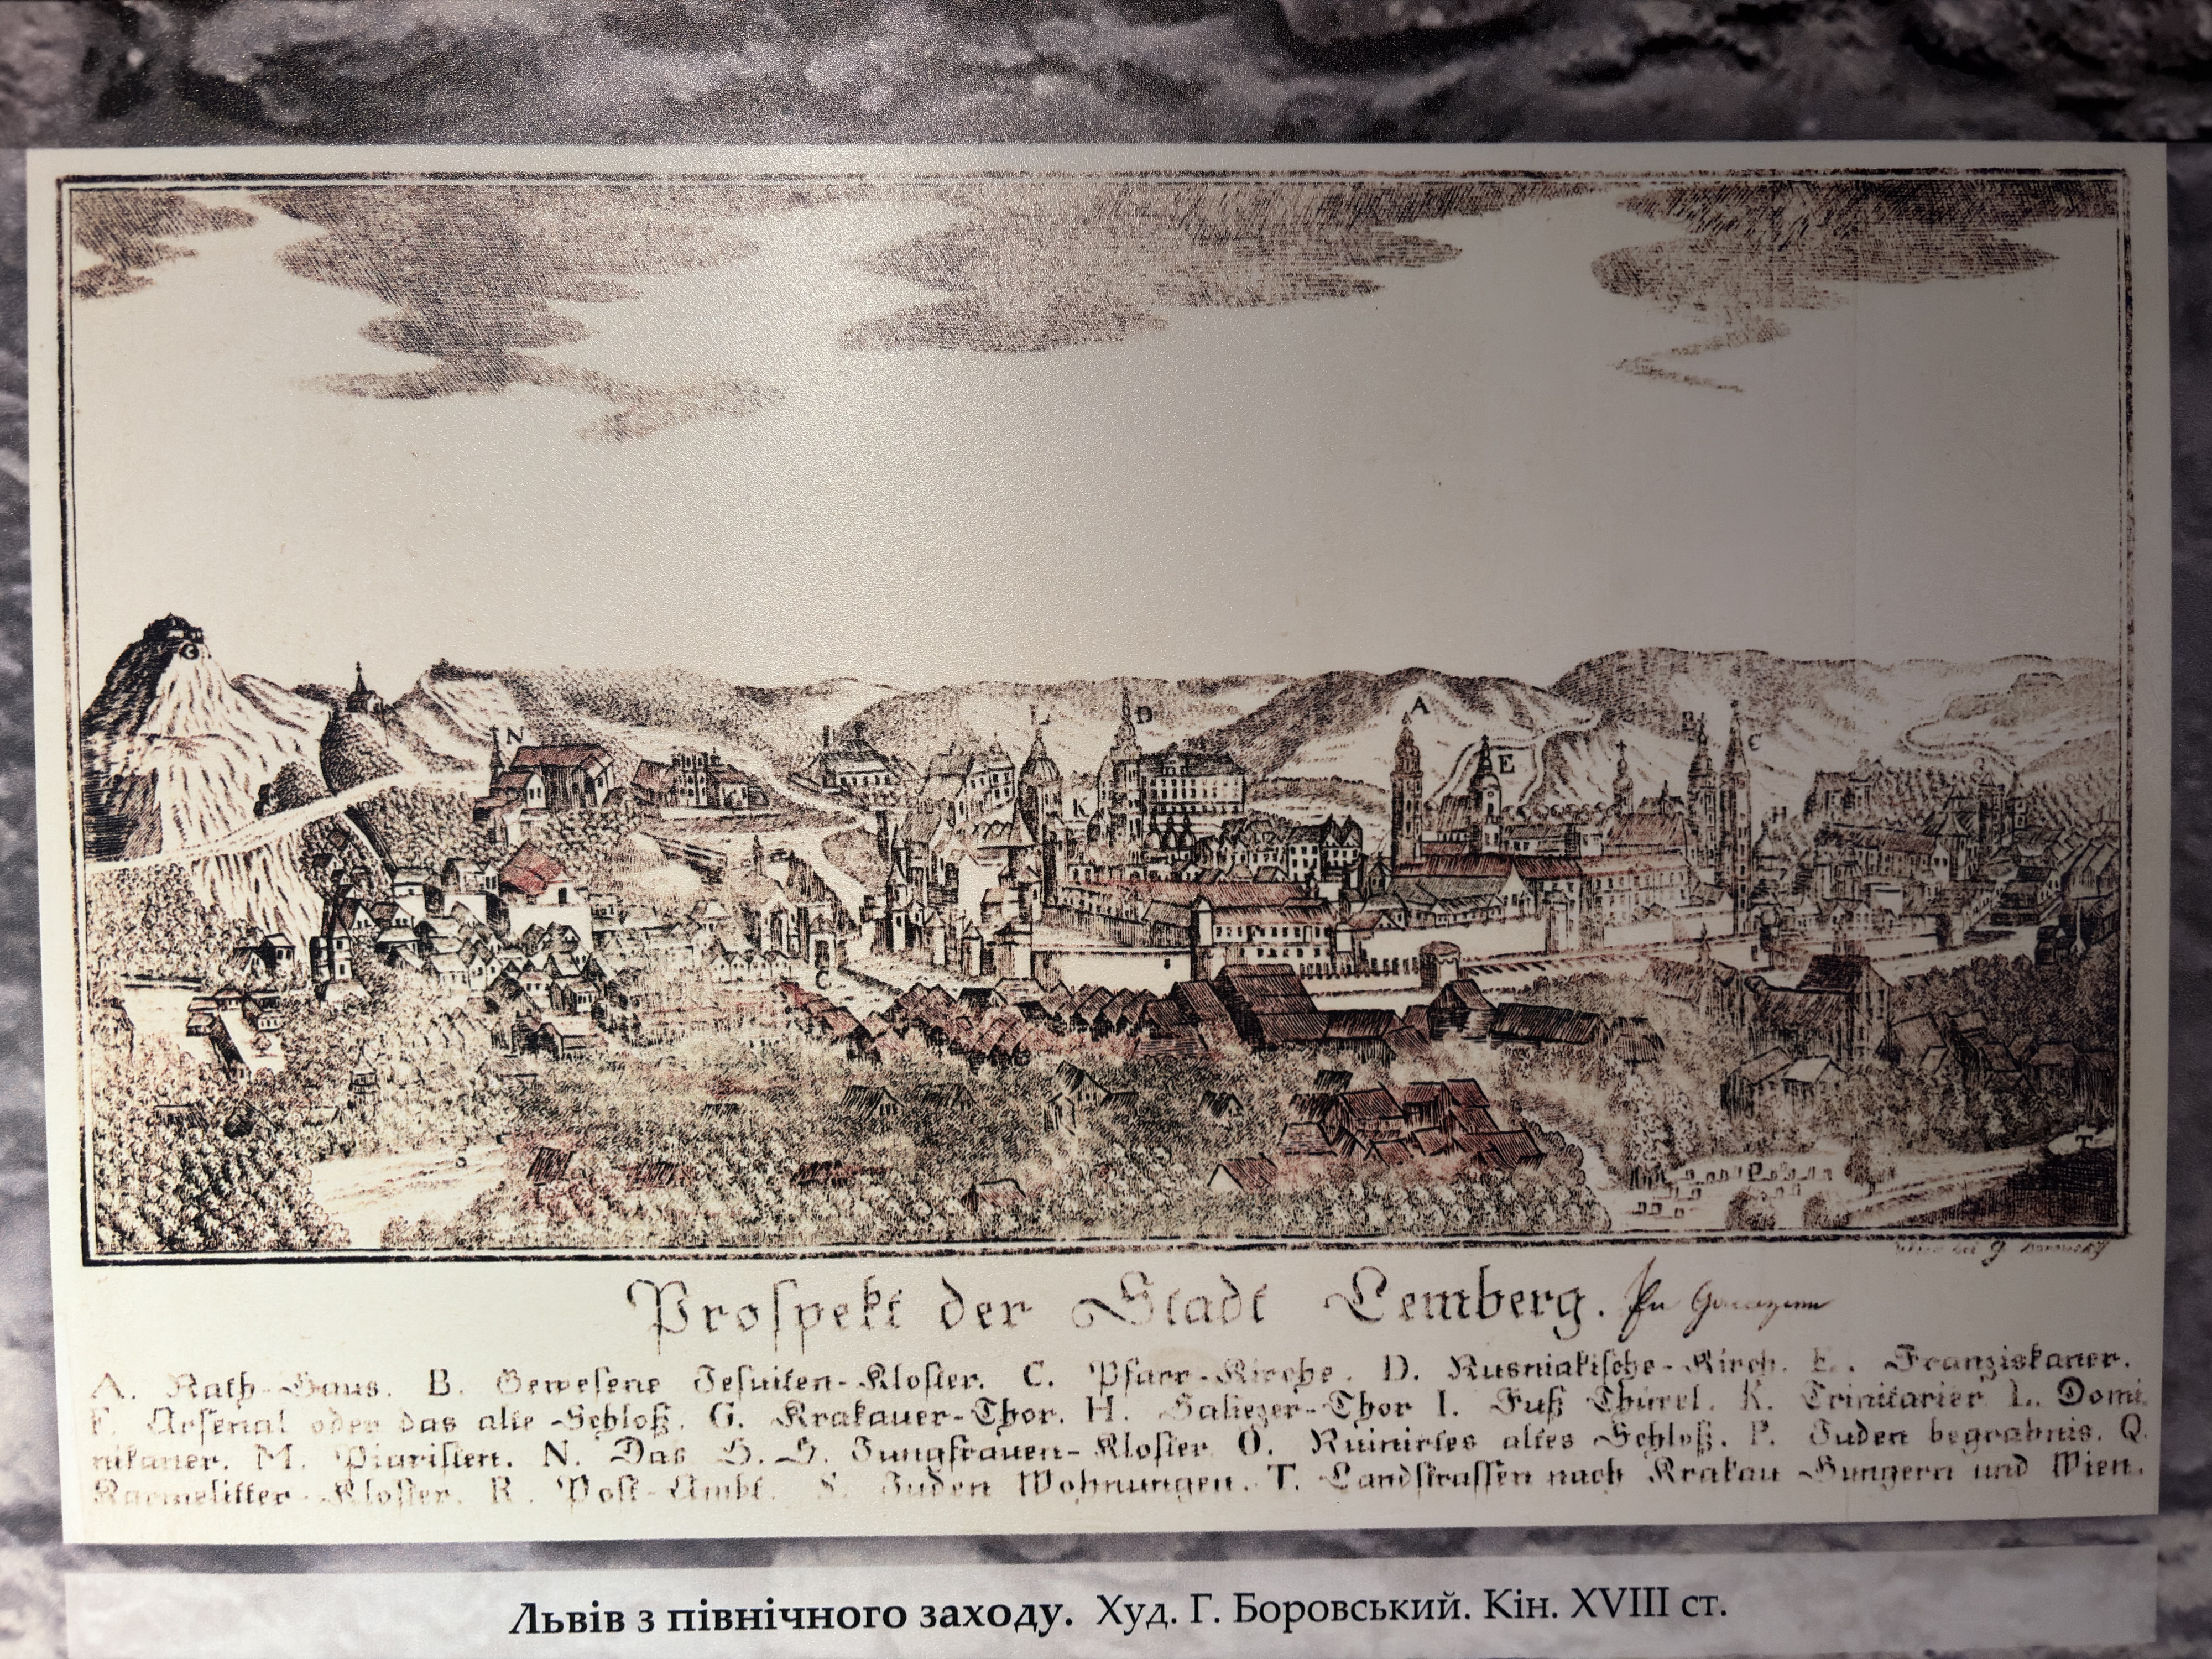 N
L
D
K
A
E
B
C
H
G
S
P
T
Prospekt der Stadt Lemberg.
A. Rath-Haus. B. Gewesene Jesuiten-Kloster. C. Pfarr-Kirche. D. Rusniakische-Kirch. E. Franziskaner.
F. Arsenal oder das alte Schloß. G. Krakauer-Thor. H. Haliczer-Thor I. Fuß Thürel. K. Trinitarier L. Domi-
nikaner. M. Piaristen. N. Das H.H. Jungfrauen-Kloster. O. Ruinirtes altes Schloß. P. Juden begrabnis. Q.
Karmelitter-Kloster. R. Post-Ambt. S. Juden Wohnungen. T. Landstrassen nach Krakau Hungern und Wien.
Львів з північного заходу. Худ. Г. Боровський. Кін. XVIII ст.